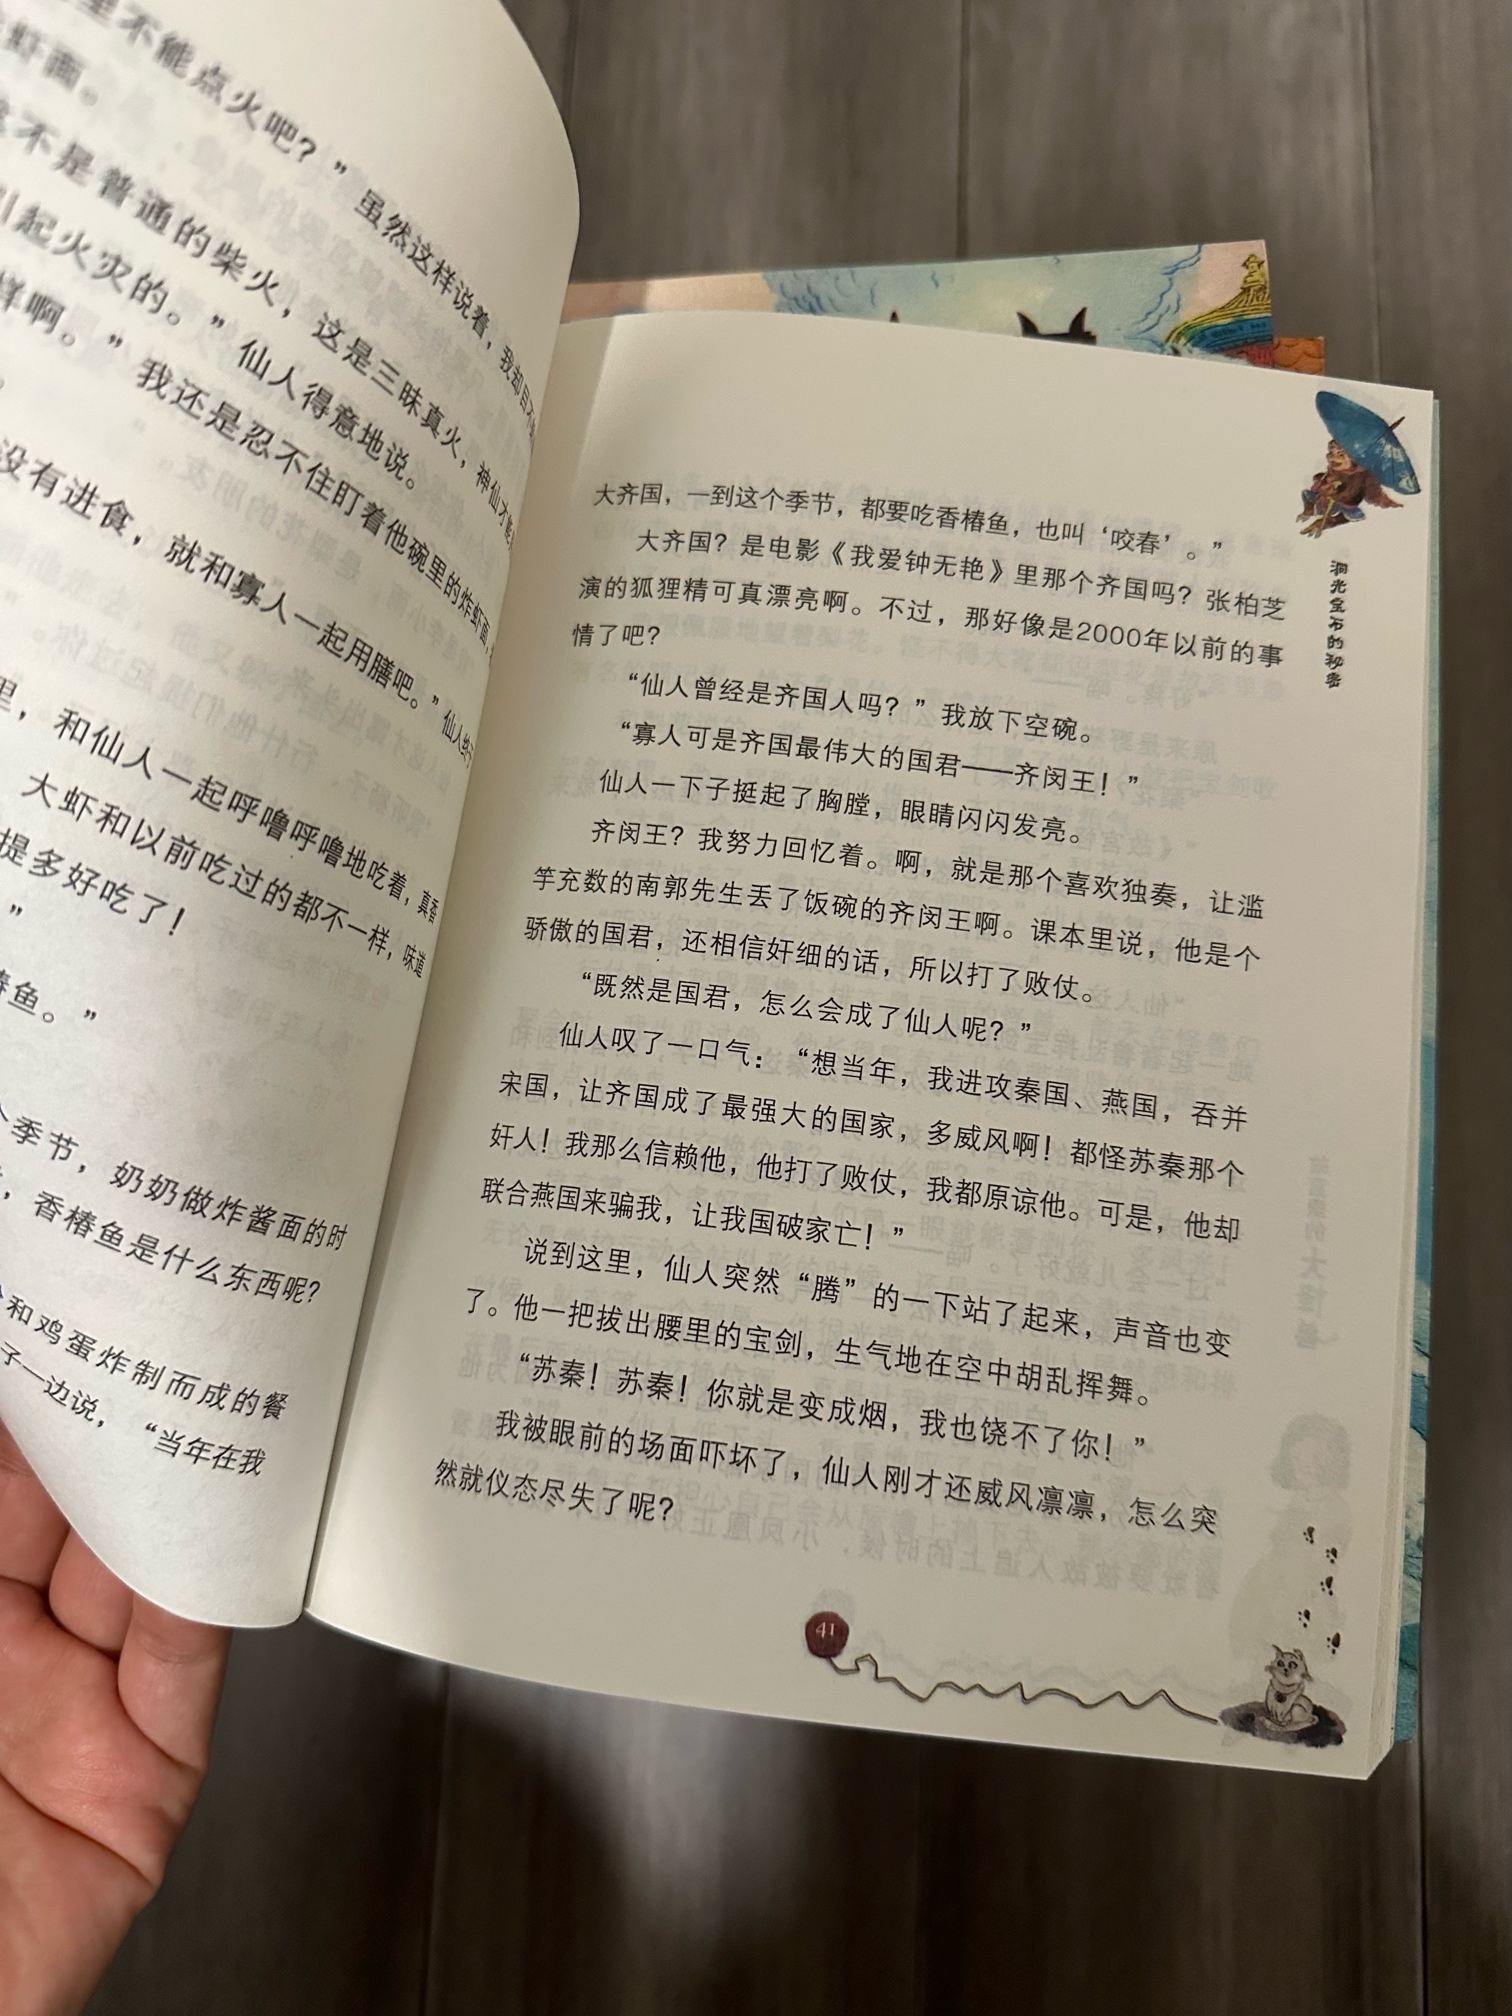 里不能点火吧？”虽然这样说着，我却目不
虾面。
不是普通的柴火，这是三昧真火，神仙才能
引起火灾的。”仙人得意地说。
样啊。”我还是忍不住盯着他碗里的炸虾面，
没有进食，就和寡人一起用膳吧。”仙人终于
里，和仙人一起呼噜呼噜地吃着，真香
大虾和以前吃过的都不一样，味道
提多好吃了！
”
椿鱼。”
个季节，奶奶做炸酱面的时
，香椿鱼是什么东西呢？
和鸡蛋炸制而成的餐
子一边说，“当年在我
大齐国，一到这个季节，都要吃香椿鱼，也叫‘咬春’。”
大齐国？是电影《我爱钟无艳》里那个齐国吗？张柏芝
演的狐狸精可真漂亮啊。不过，那好像是2000年以前的事
情了吧？
“仙人曾经是齐国人吗？”我放下空碗。
“寡人可是齐国最伟大的国君——齐闵王！”
仙人一下子挺起了胸膛，眼睛闪闪发亮。
齐闵王？我努力回忆着。啊，就是那个喜欢独奏，让滥
竽充数的南郭先生丢了饭碗的齐闵王啊。课本里说，他是个
骄傲的国君，还相信奸细的话，所以打了败仗。
“既然是国君，怎么会成了仙人呢？”
仙人叹了一口气：“想当年，我进攻秦国、燕国，吞并
宋国，让齐国成了最强大的国家，多威风啊！都怪苏秦那个
奸人！我那么信赖他，他打了败仗，我都原谅他。可是，他却
联合燕国来骗我，让我国破家亡！”
说到这里，仙人突然“腾”的一下站了起来，声音也变
了。他一把拔出腰里的宝剑，生气地在空中胡乱挥舞。
“苏秦！苏秦！你就是变成烟，我也饶不了你！”
我被眼前的场面吓坏了，仙人刚才还威风凛凛，怎么突
然就仪态尽失了呢？
洞光宝石的秘密
41